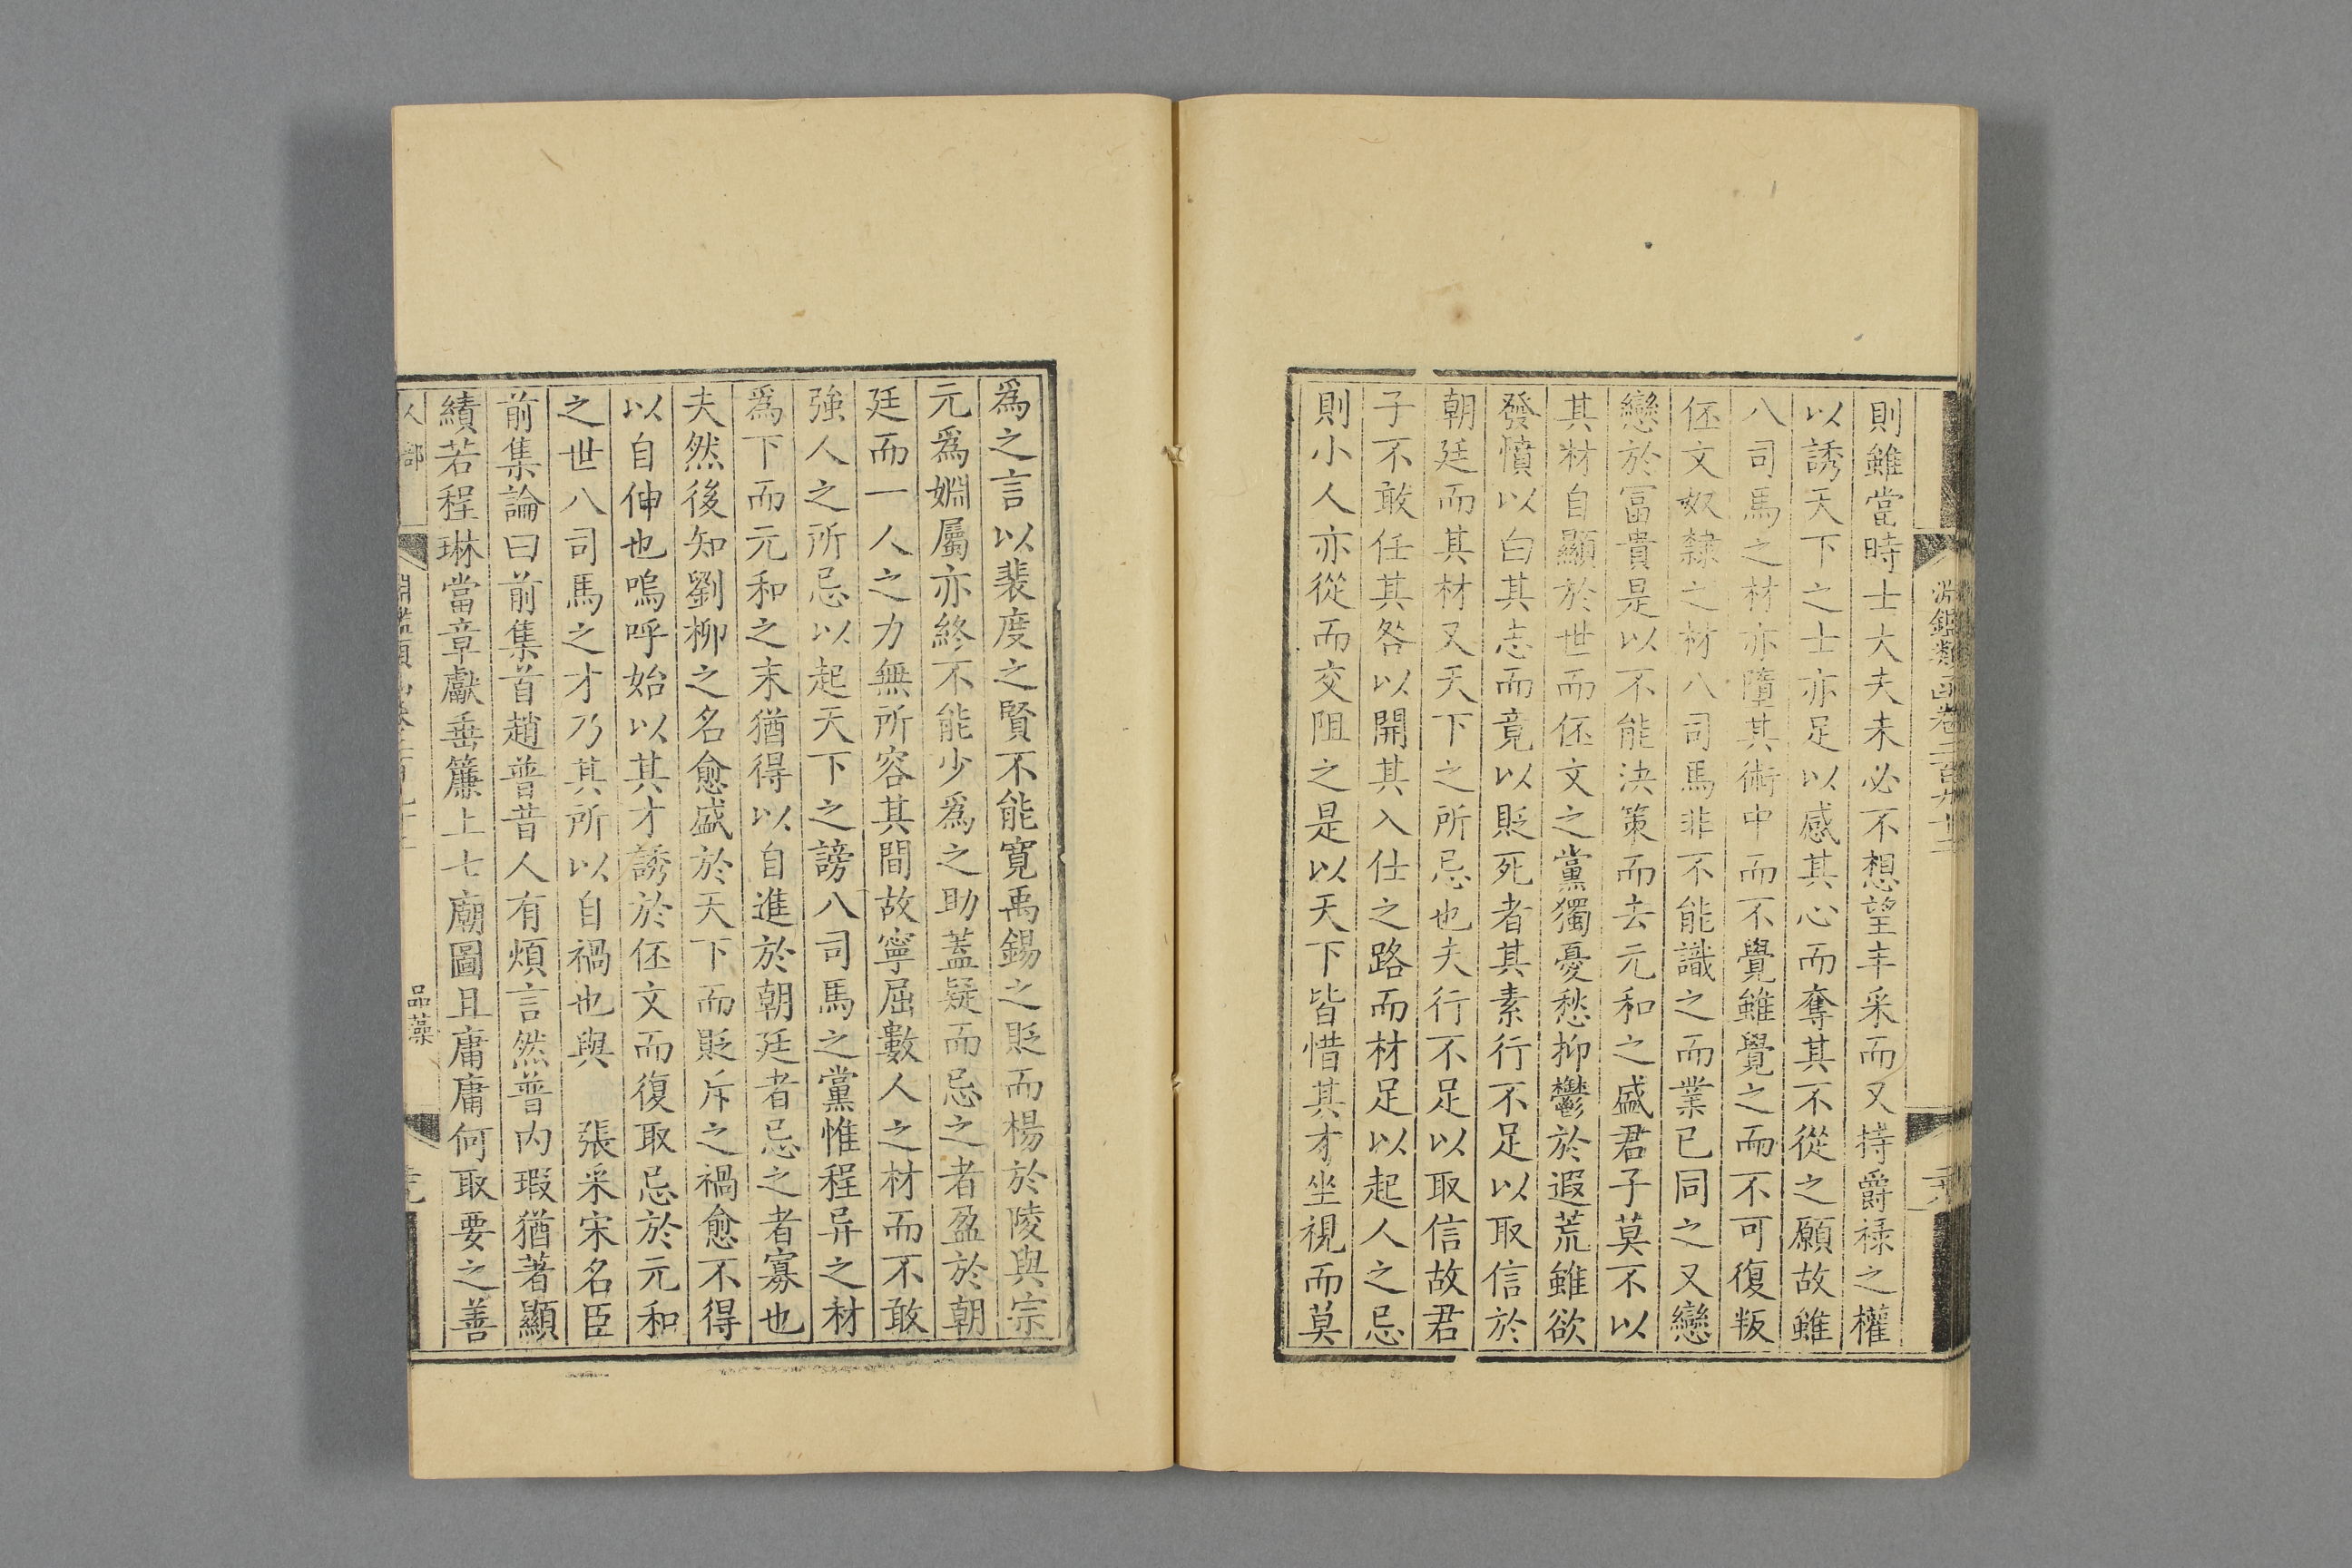 淵鑑類函卷二百九十三
則雖當時士大夫未必不想望丰采而又持爵祿之權
以誘天下之士亦足以感其心而奪其不從之願故雖
八司馬之材亦墮其術中而不覺雖覺之而不可復叛
伾文奴隸之材八司馬非不能識之而業已同之又戀
戀於富貴是以不能決策而去元和之盛君子莫不以
其材自顯於世而伾文之黨獨憂愁抑鬱於遐荒雖欲
發憤以白其志而竟以貶死者其素行不足以取信於
朝廷而其材又天下之所忌也夫行不足以取信故君
子不敢任其咎以開其入仕之路而材足以起人之忌
則小人亦從而交阻之是以天下皆惜其才坐視而莫
為之言以裴度之賢不能寛禹錫之貶而楊於陵與宗
元爲婣屬亦終不能少爲之助蓋疑而忌之者盈於朝
廷而一人之力無所容其間故寧屈數人之材而不敢
強人之所忌以起天下之謗八司馬之黨惟程异之材
爲下而元和之末猶得以自進於朝廷者忌之者寡也
夫然後知劉柳之名愈盛於天下而貶斥之禍愈不得
以自伸也嗚呼始以其才誘於伾文而復取忌於元和
之世八司馬之才乃其所以自禍也與　張采宋名臣
前集論曰前集首趙普昔人有煩言然普內瑕猶著顯
績若程琳當章獻垂簾上七廟圖且庸庸何取要之善
人部
品藻